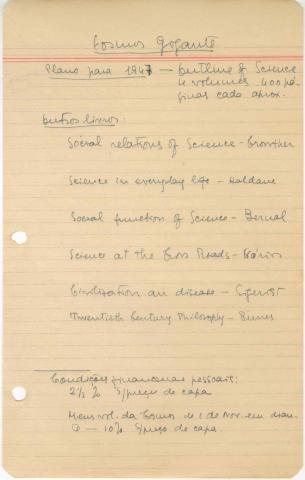 Cosmos Gigante
Plano para 1947 — Outline of Science
4 volumes, 400 pá-
ginas cada aprox.
Outros livros:
Social relations of Science - Crowther
Science in everyday life - Haldane
Social function of Science - Bernal
Science at the Cross Roads - Vários
Civilization and disease - Sigerist
Twentieth Century Philosophy - Runes
Condições financeiras pessoais:
2½ % s/preço de capa
Mens vol. da Cosmos de 1 de Nov. em dian-
te — 10% s/preço de capa.